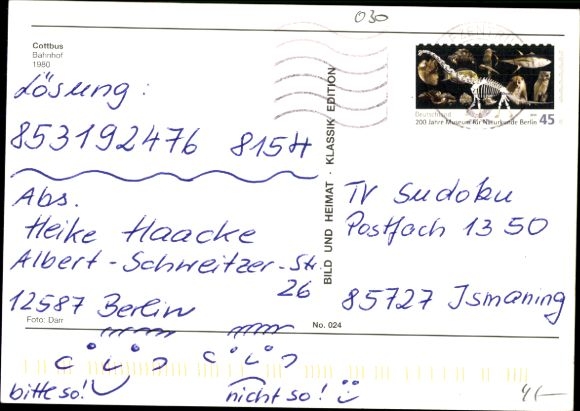 030
Cottbus
Bahnhof
1980
Lösung:
853192476 8154
Abs.
Heike Haacke
Albert-Schweitzer-Str.
26
12587 Berlin
Foto: Darr
bitte so!
nicht so!
BILD UND HEIMAT · KLASSIK EDITION
No. 024
Deutschland
200 Jahre Museum für Naturkunde Berlin 45
TV Sudoku
Postfach 1350
85727 Ismaning
4,-